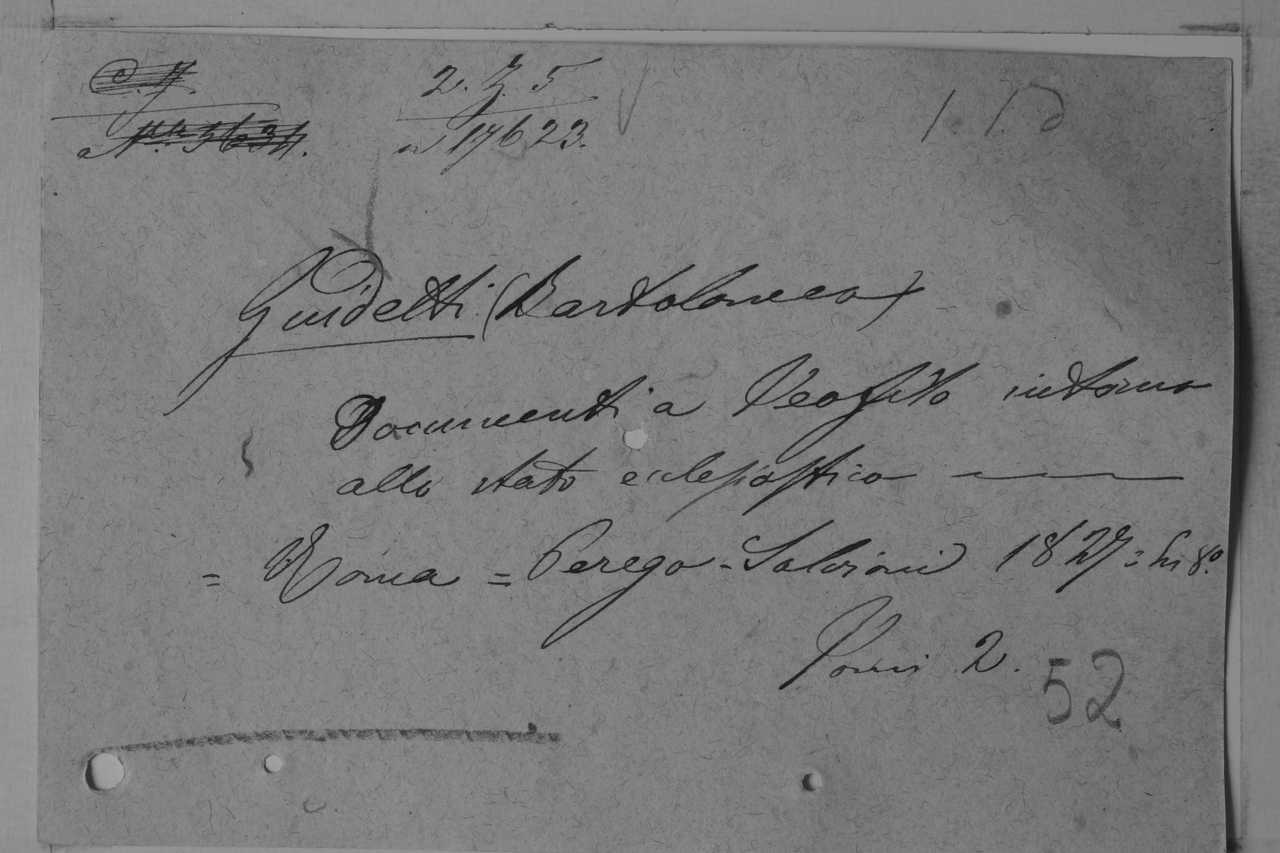 2. Z. 5
17623.
Guidetti (Bartolomeo)
Documenti a Teofilo intorno
allo stato eclesiastico
= Roma = Perego-Salvioni 1827 = in 8.º
Tomi 2.
52